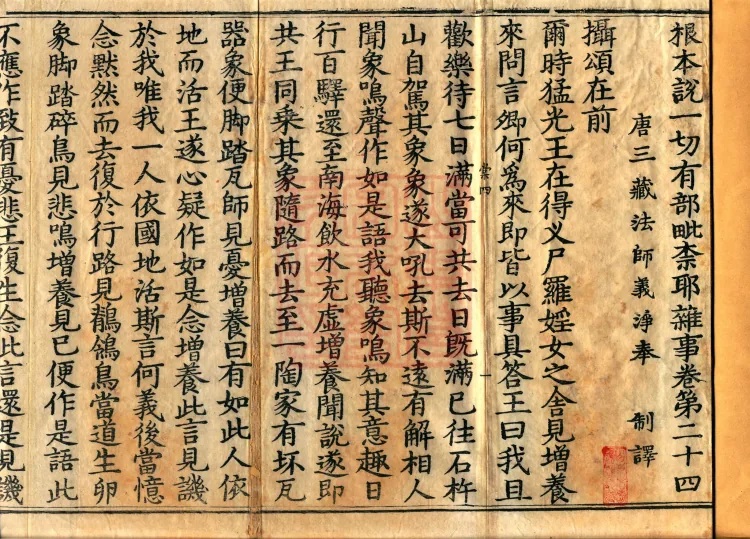 根本說一切有部毗柰耶雜事卷第二十四
唐三藏法師義淨奉 制譯
攝頌在前
爾時猛光王在得义尸羅婬女之舍見增養
來問言卿何爲來即皆以事具答王曰我且
歡樂待七日滿當可共去日旣滿已往石杵
棠四
山自駕其象象遂大吼去斯不遠有解相人
聞象鳴聲作如是語我聽象鳴知其意趣日
行百驛還至南海飲水充虛增養聞說遂即
共王同乗其象隨路而去至一陶家有坏瓦
器象便脚踏瓦師見憂增養曰有如此人依
地而活王遂心疑作如是念增養此言見譏
於我唯我一人依國地活斯言何義後當憶
念默然而去復於行路見鶺鴒鳥當道生卵
象脚踏碎鳥見悲鳴增養見已便作是語此
不應作致有憂悲王復生念此言還是見譏